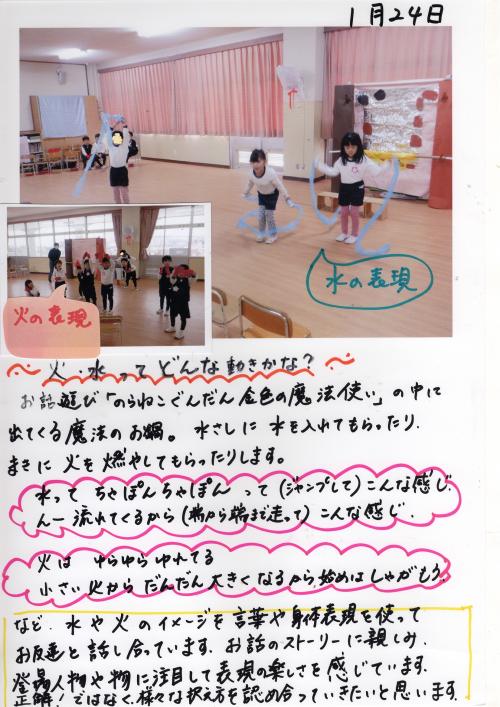 1月24日
水の表現
火の表現
火・水ってどんな動きかな?
お話遊び「のらねこぐんだん金色の魔法使い」の中に
出てくる魔法のお鍋。水さしに水を入れてもらったり、
まきに火を燃やしてもらったりします。
水って ちゃぽんちゃぽん って(ジャンプして)こんな感じ。
んー流れてくるから(端から端まで走って)こんな感じ。
火は ゆらゆらゆれてる
小さい火からだんだん大きくなるから始めはしゃがもう。
など、水や火のイメージを言葉や身体表現を使って
お友達と話し合っています。お話のストーリーに親しみ、
登場人物や物に注目して表現の楽しさを感じています。
正解!ではなく、様々な捉え方を認め合っていきたいと思います。